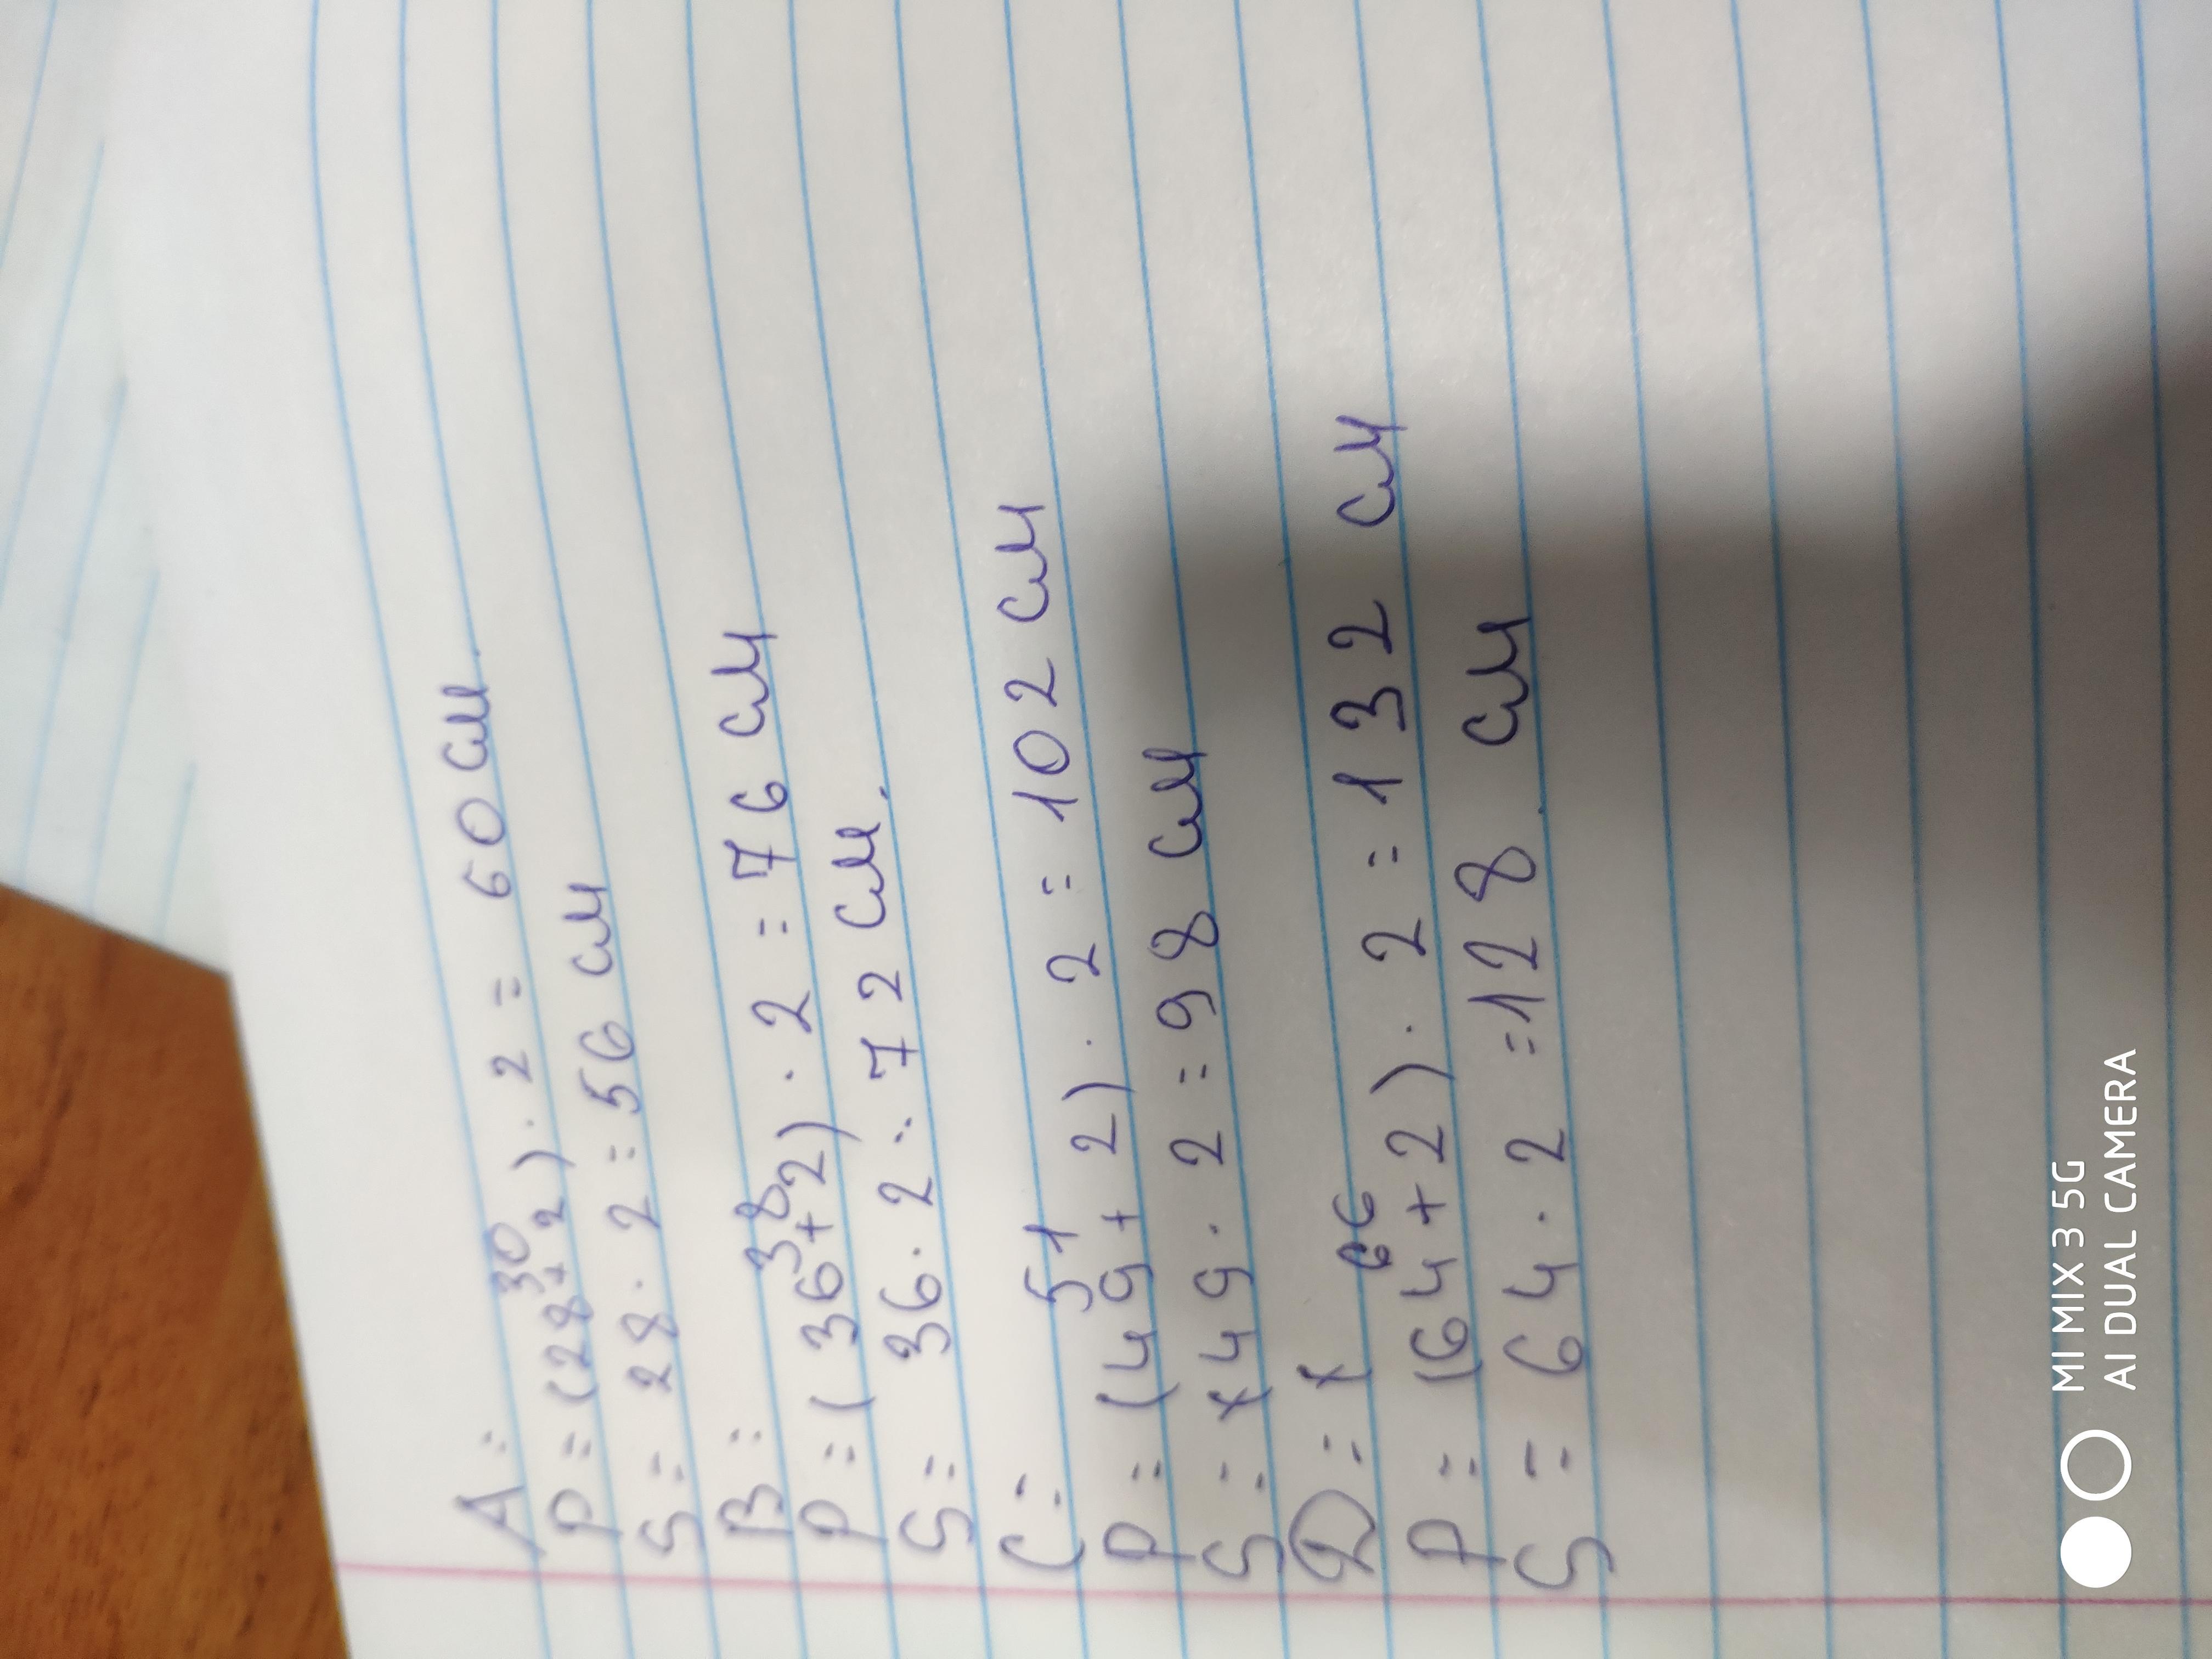 A:
30
P = (28+2) · 2 = 60 см
S = 28 · 2 = 56 см
B:
38
P = (36+2) · 2 = 76 см
S = 36 · 2 = 72 см.
C:
51
P = (49 + 2) · 2 = 102 см
S = 49 · 2 = 98 см
D =
66
P = (64+2) · 2 = 132 см
S = 64 · 2 = 128 см
MI MIX 3 5G
AI DUAL CAMERA